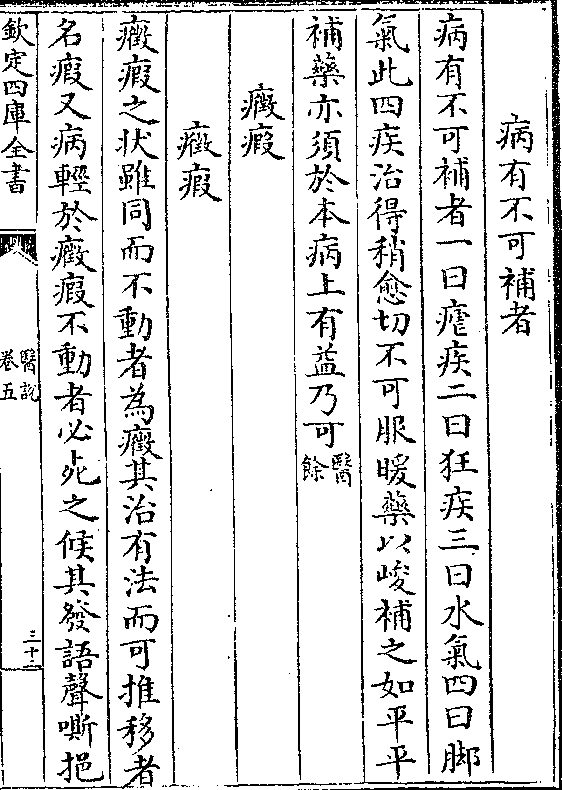 病有不可補者
病有不可補者一曰瘧疾二曰狂疾三曰水氣四曰脚
氣此四疾治得稍愈切不可服暖藥以峻補之如平平
補藥亦須於本病上有益乃可醫餘
癥瘕
癥瘕
癥瘕之状雖同而不動者為癥其治有法而可推移者
名瘕又病輕於癥瘕不動者必死之候其發語聲嘶挹
欽定四庫全書
醫説
卷五
三十二